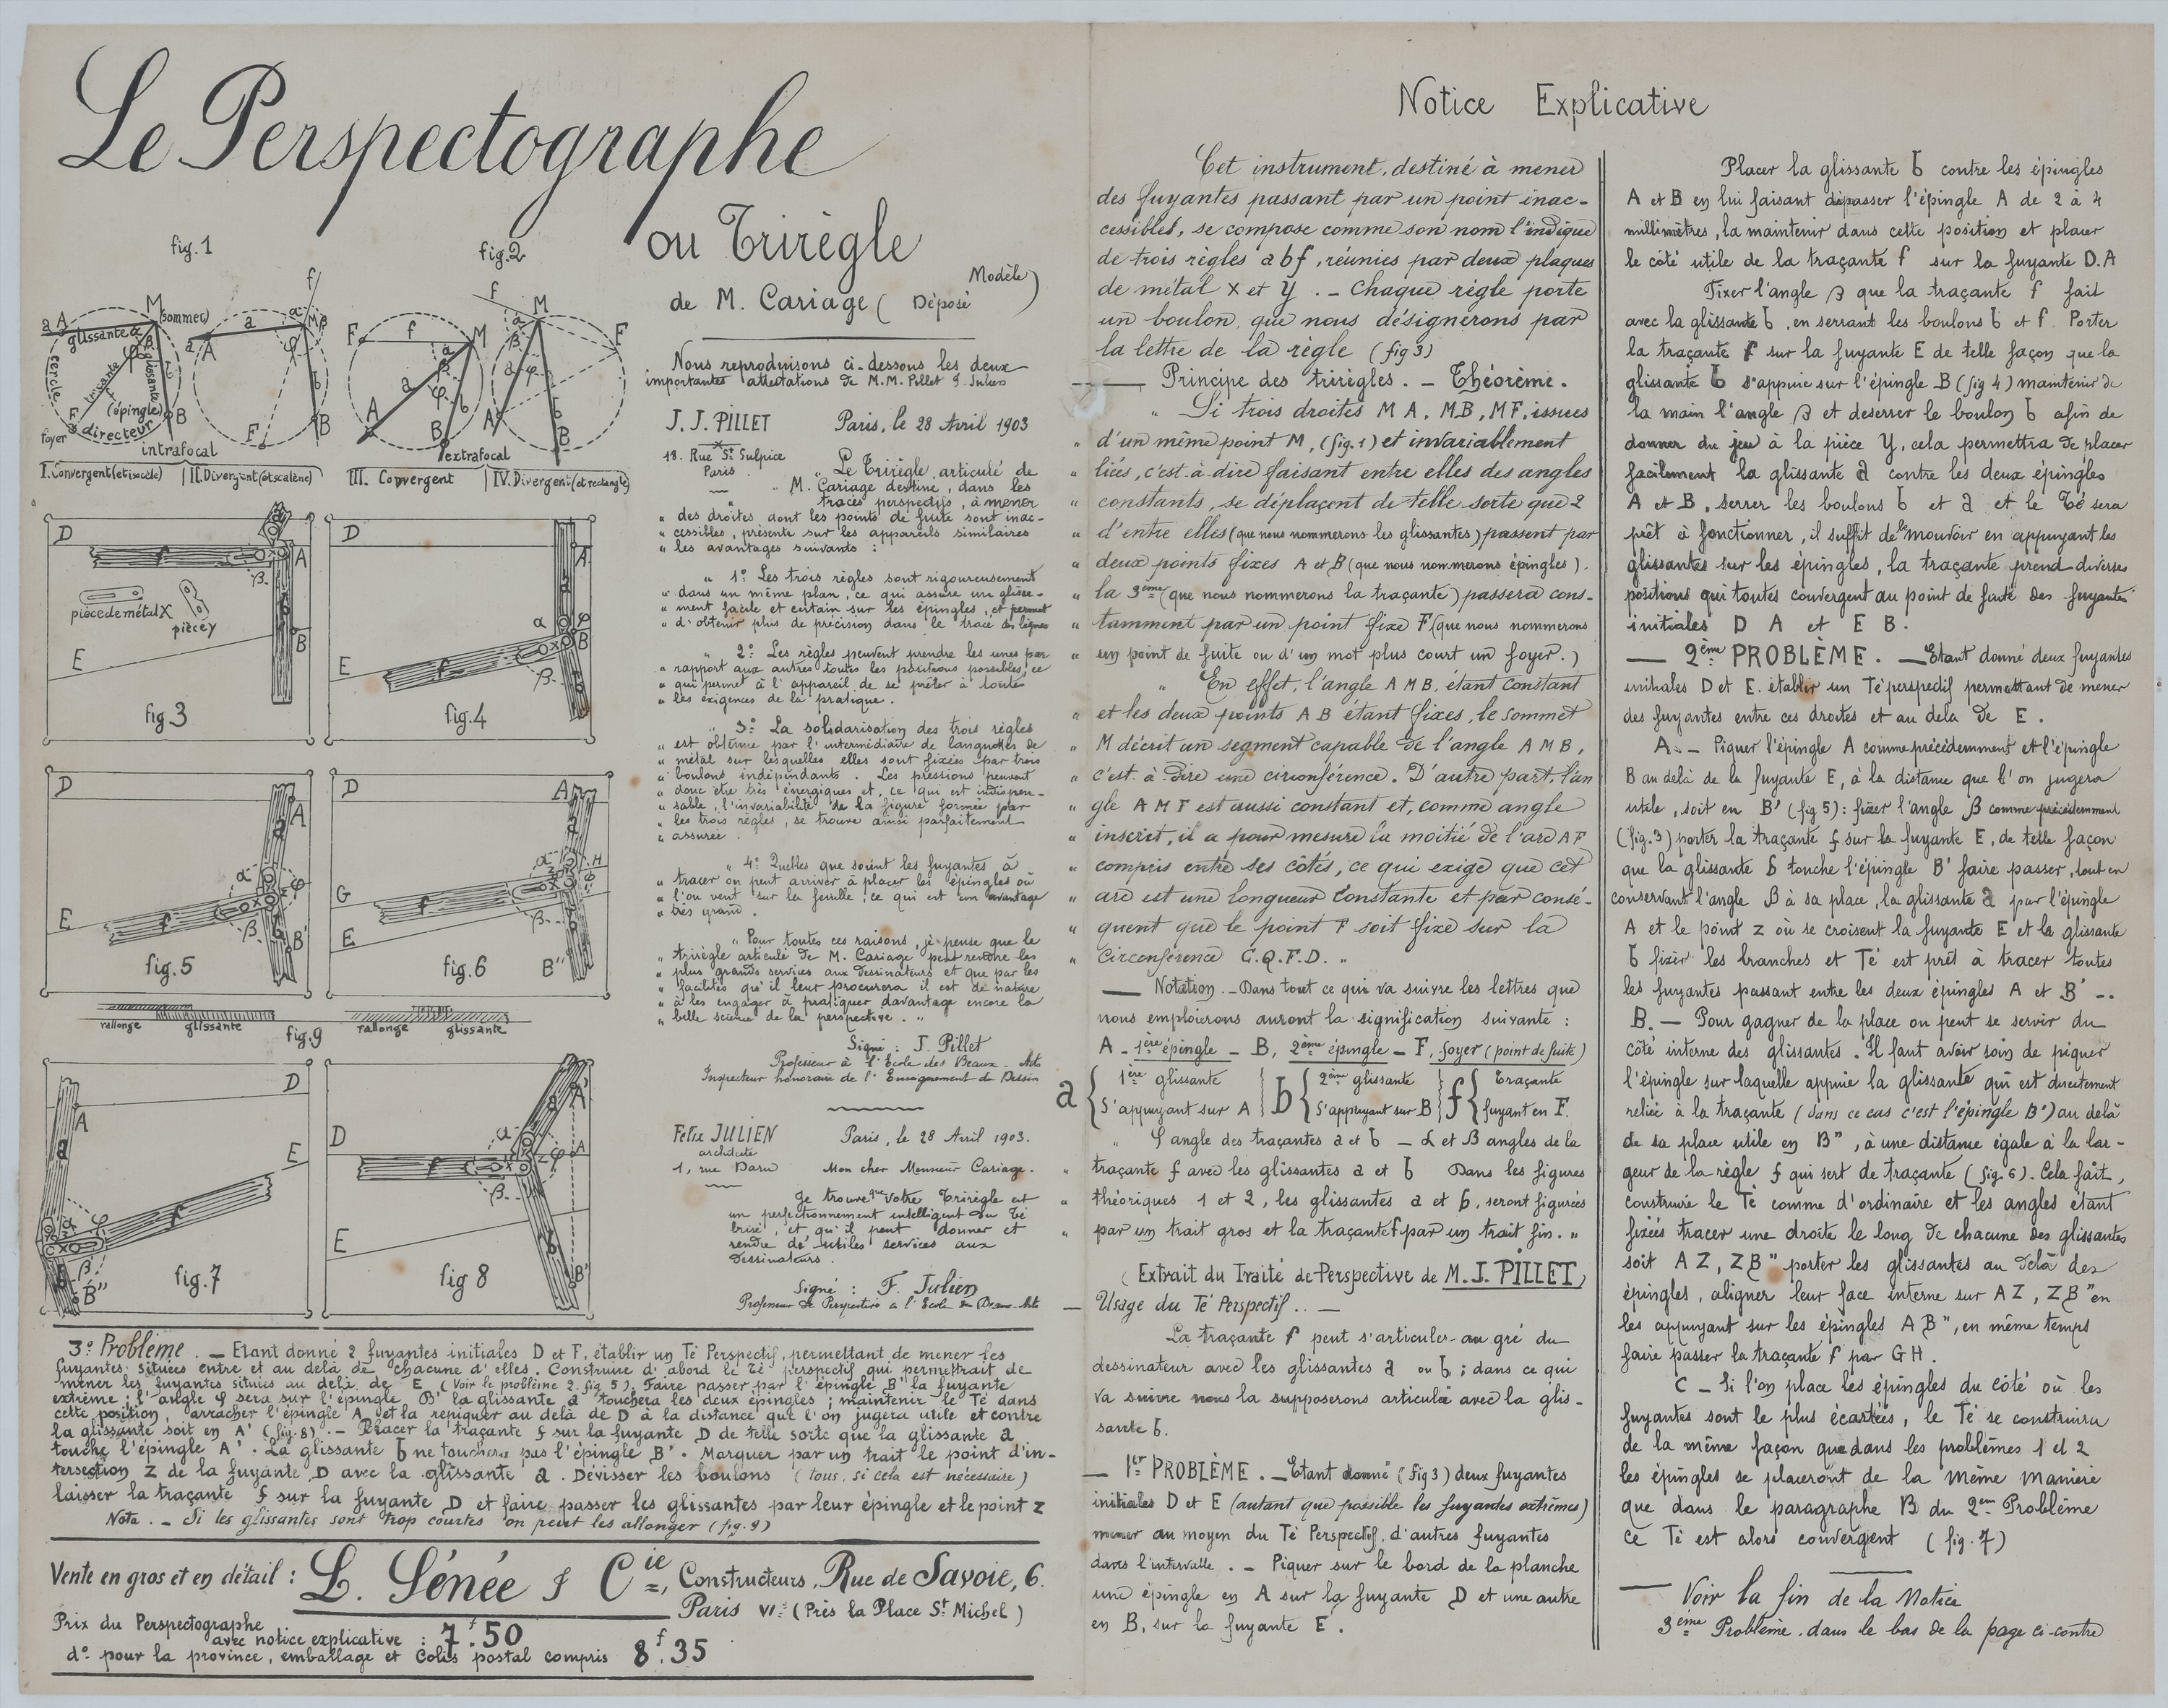 Le Perspectographe
ou Trirègle
de M. Cariage ( Modèle Déposé )
fig. 1
fig. 2
a A
M (sommet)
glissante
cercle
fuyante
glissante
F
foyer
(épingle) B
directeur
intrafocal
extrafocal
I. Convergent (et isocèle) | II. Divergent (et scalène)
III. Convergent | IV. Divergent (et rectangle)
Nous reproduisons ci-dessous les deux
importantes attestations de M.M. Pillet & Julien
J. J. PILLET Paris, le 28 Avril 1903
18. Rue St Sulpice
Paris
" Le Trirègle articulé de
" M. Cariage destiné, dans les
" tracés perspectifs, à mener
" des droites dont les points de fuite sont inac-
" cessibles, présente sur les appareils similaires
" les avantages suivants :
" 1º Les trois règles sont rigoureusement
" dans un même plan, ce qui assure un glisse-
" ment facile et certain sur les épingles, et permet
" d'obtenir plus de précision dans le tracé des lignes
" 2º Les règles peuvent prendre les unes par
" rapport aux autres toutes les positions possibles, ce
" qui permet à l'appareil de se prêter à toutes
" les exigences de la pratique.
" 3º La solidarisation des trois règles
" est obtenue par l'intermédiaire de languettes de
" métal sur lesquelles elles sont fixées par trois
" boulons indépendants. Les pressions peuvent
" donc être très énergiques et, ce qui est indispen-
" sable, l'invariabilité de la figure formée par
" les trois règles, se trouve ainsi parfaitement
" assurée.
" 4º Quelles que soient les fuyantes à
" tracer on peut arriver à placer les épingles où
" l'on veut sur la feuille ; ce qui est un avantage
" très grand.
" Pour toutes ces raisons, je pense que le
" trirègle articulé de M. Cariage peut rendre les
" plus grands services aux dessinateurs et que par les
" facilités qu'il leur procurera il est de nature
" à les engager à pratiquer davantage encore la
" belle science de la perspective. "
Signé : J. Pillet
Professeur à l'Ecole des Beaux-Arts
Inspecteur honoraire de l'Enseignement du Dessin
Félix JULIEN Paris, le 28 Avril 1903.
architecte
1, rue Daru Mon cher Monsieur Cariage.
Je trouve que votre Trirègle est
un perfectionnement intelligent du Té
brisé, et qu'il peut donner et
rendre de utiles services aux
Dessinateurs.
Signé : F. Julien
Professeur de Perspective à l'Ecole des Beaux-Arts
D
f
A
B
E
pièce de métal X
pièce y
fig. 3
fig. 4
fig. 5
fig. 6
rallonge glissante
fig. 9
rallonge glissante
fig. 7
fig 8
3º Problème. — Etant donné 2 fuyantes initiales D et F, établir un Té Perspectif, permettant de mener les
fuyantes situées entre et au delà de chacune d'elles. Construire d'abord le Té perspectif qui permettrait de
mener les fuyantes situées au delà de E, (Voir le problème 2. fig 5). Faire passer par l'épingle B' la fuyante
extrême ; l'angle φ sera sur l'épingle B' la glissante a touchera les deux épingles ; maintenir le Té dans
cette position, arracher l'épingle A et la repiquer au delà de D à la distance que l'on jugera utile et contre
la glissante soit en A' (fig. 8). — Placer la traçante f sur la fuyante D de telle sorte que la glissante a
touche l'épingle A'. La glissante b ne touchera pas l'épingle B'. Marquer par un trait le point d'in-
tersection Z de la fuyante D avec la glissante a. Dévisser les boulons (tous, si cela est nécessaire)
laisser la traçante f sur la fuyante D et faire passer les glissantes par leur épingle et le point Z
Nota. — Si les glissantes sont trop courtes on peut les allonger (fig. 9)
Vente en gros et en détail : L. Sénée & Cie, Constructeurs, Rue de Savoie, 6.
Paris VIe (Près la Place St Michel)
Prix du Perspectographe
avec notice explicative : 7f.50
dº pour la province, emballage et Colis postal compris 8f.35
Notice Explicative
Cet instrument, destiné à mener
des fuyantes passant par un point inac-
cessibles, se compose comme son nom l'indique
de trois règles a b f, réunies par deux plaques
de métal X et Y. — Chaque règle porte
un boulon, que nous désignerons par
la lettre de la règle (fig 3)
— Principe des trirègles. — Théorème.
" Si trois droites M A, M B, M F, issues
" d'un même point M, (fig. 1) et invariablement
" liées, c'est à dire faisant entre elles des angles
" constants, se déplaçent de telle sorte que 2
" d'entre elles (que nous nommerons les glissantes) passent par
" deux points fixes A et B (que nous nommerons épingles).
" la 3ème (que nous nommerons la traçante) passera cons-
" tamment par un point fixe F (que nous nommerons
" un point de fuite ou d'un mot plus court un foyer.)
" En effet, l'angle A M B, étant constant
" et les deux points A B étant fixes, le sommet
" M décrit un segment capable de l'angle A M B,
" c'est à dire une circonférence. D'autre part, l'an
" gle A M F est aussi constant et, comme angle
" inscrit, il a pour mesure la moitié de l'arc A F
" compris entre ses côtés, ce qui exige que cet
" arc est une longueur constante et par consé-
" quent que le point F soit fixe sur la
" Circonférence C.Q.F.D. "
— Notation. — Dans tout ce qui va suivre les lettres que
nous emploierons auront la signification suivante :
A - 1ère épingle — B, 2ème épingle — F, foyer (point de fuite)
a { 1ère glissante s'appuyant sur A } b { 2ème glissante s'appuyant sur B } f { Traçante fuyant en F.
" φ angle des traçantes a et b — α et β angles de la
" traçante f avec les glissantes a et b Dans les figures
" théoriques 1 et 2, les glissantes a et b, seront figurées
" par un trait gros et la traçante f par un trait fin. "
( Extrait du Traité de Perspective de M. J. PILLET )
— Usage du Té Perspectif. . —
La traçante f peut s'articuler au gré du
dessinateur avec les glissantes a ou b ; dans ce qui
va suivre nous la supposerons articulée avec la glis-
sante b.
— 1er PROBLÈME. — Etant donné (fig 3) deux fuyantes
initiales D et E (autant que possible les fuyantes extrêmes)
mener au moyen du Té Perspectif, d'autres fuyantes
dans l'intervalle. — Piquer sur le bord de la planche
une épingle en A sur la fuyante D et une autre
en B, sur la fuyante E.
Placer la glissante b contre les épingles
A et B en lui faisant dépasser l'épingle A de 2 à 4
millimètres, la maintenir dans cette position et placer
le côté utile de la traçante f sur la fuyante D.A
Fixer l'angle β que la traçante f fait
avec la glissante b, en serrant les boulons b et f. Porter
la traçante f sur la fuyante E de telle façon que la
glissante b s'appuie sur l'épingle B (fig 4) maintenir de
la main l'angle β et desserer le boulon b afin de
donner du jeu à la pièce Y, cela permettra de placer
facilement la glissante a contre les deux épingles
A et B, serrer les boulons b et a et le Té sera
prêt à fonctionner, il suffit de le mouvoir en appuyant les
glissantes sur les épingles, la traçante prend diverses
positions qui toutes convergent au point de fuite des fuyantes
initiales D A et E B.
— 2ème PROBLÈME. — Etant donné deux fuyantes
initiales D et E. établir un Té perspectif permettant de mener
des fuyantes entre ces droites et au delà de E.
A. — Piquer l'épingle A comme précédemment et l'épingle
B au delà de la fuyante E, à la distance que l'on jugera
utile, soit en B' (fig 5) : fixer l'angle β comme précédemment
(fig. 3) porter la traçante f sur la fuyante E, de telle façon
que la glissante b touche l'épingle B' faire passer, tout en
conservant l'angle β à sa place, la glissante a par l'épingle
A et le point z où se croisent la fuyante E et la glissante
b fixer les branches et Té est prêt à tracer toutes
les fuyantes passant entre les deux épingles A et B' —.
B. — Pour gagner de la place on peut se servir du
côté interne des glissantes. Il faut avoir soin de piquer
l'épingle sur laquelle appuie la glissante qui est directement
reliée à la traçante (dans ce cas c'est l'épingle B') au delà
de sa place utile en B", à une distance égale à la lar-
geur de la règle f qui sert de traçante (fig. 6). Cela fait,
construire le Té comme d'ordinaire et les angles étant
fixés tracer une droite le long de chacune des glissantes
soit A Z, Z B" porter les glissantes au delà des
épingles, aligner leur face interne sur A Z, Z B" en
les appuyant sur les épingles A B", en même temps
faire passer la traçante f par G H.
C — Si l'on place les épingles du côté où les
fuyantes sont le plus écartées, le Té se construira
de la même façon que dans les problèmes 1 et 2
les épingles se placeront de la même manière
que dans le paragraphe B du 2ème Problème
ce Té est alors convergent (fig. 7)
— Voir la fin de la Notice
3ème Problème. dans le bas de la page ci-contre